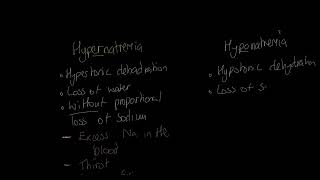 Hypernatremia
• Hypertonic dehydration
• Loss of water
• Without proportional
loss of sodium
- Excess Na in the
blood
- Thirst
Hyponatremia
• Hypotonic dehydration
• Loss of s